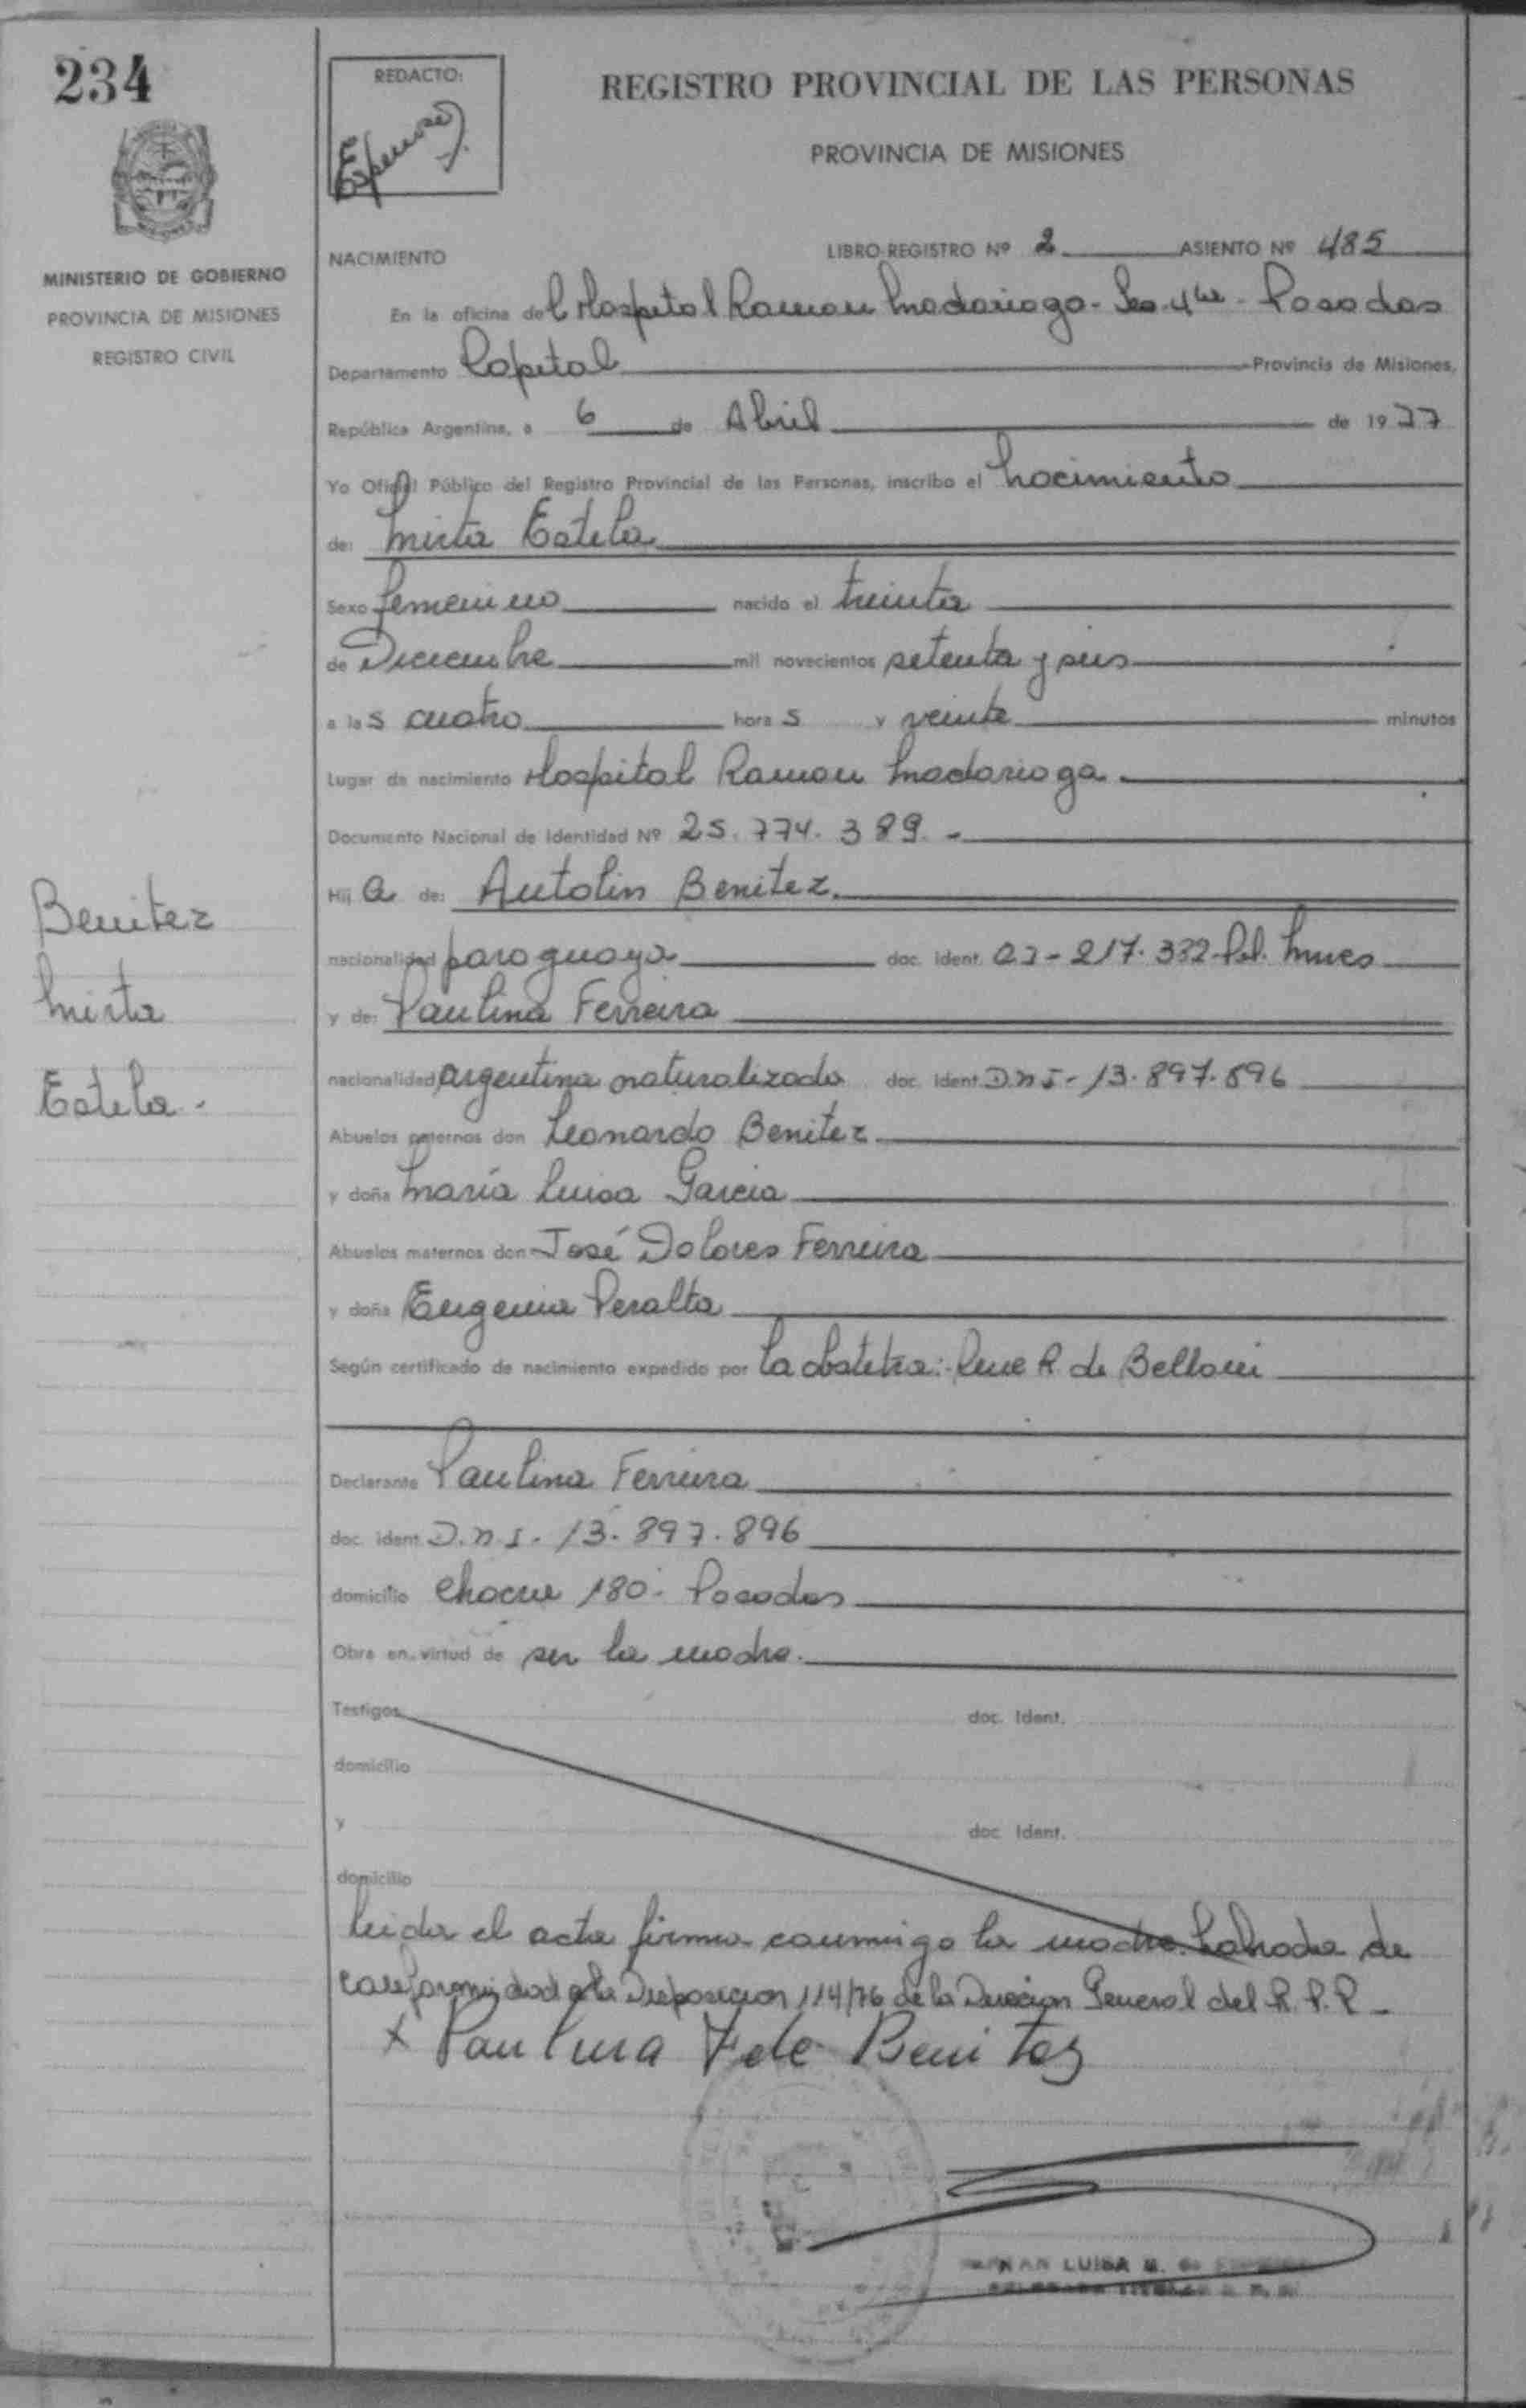 234
REDACTO:
REGISTRO PROVINCIAL DE LAS PERSONAS
PROVINCIA DE MISIONES
MINISTERIO DE GOBIERNO
PROVINCIA DE MISIONES
REGISTRO CIVIL
NACIMIENTO LIBRO-REGISTRO Nº 2 ASIENTO Nº 485
En la oficina del Hospital Ramon Madariaga - Posadas
Departamento Capital Provincia de Misiones,
República Argentina, a 6 de Abril de 1977
Yo Oficial Público del Registro Provincial de las Personas, inscribo el nacimiento
de: Mirta Estela
Sexo femenino nacido el treinta
de Diciembre mil novecientos setenta y seis
a las cuatro horas y veinte minutos
Lugar de nacimiento Hospital Ramon Madariaga
Documento Nacional de Identidad Nº 25.774.389.-
Hija de: Antolin Benitez
nacionalidad paraguaya doc. Ident. 217.332 Pol. Mnes
y de: Paulina Ferreira
nacionalidad argentina naturalizada doc. Ident. D.N.I - 13.897.896
Abuelos paternos don Leonardo Benitez
y doña María Luisa Garcia
Abuelos maternos don José Dolores Ferreira
y doña Eugenia Peralta
Según certificado de nacimiento expedido por la obstetra: R. de Belloni
Declarante Paulina Ferreira
doc. ident. D.N.I - 13.897.896
domicilio 180 - Posadas
Obra en virtud de ser la madre.
Testigos doc. Ident.
domicilio
y doc. Ident.
domicilio
Leida el acta firma conmigo la madre. Labrada de
conformidad a la Disposicion 114/76 de la Direccion General del R.P.P -
x Paulina F de Benitez
LUISA
Benitez
Mirta
Estela.